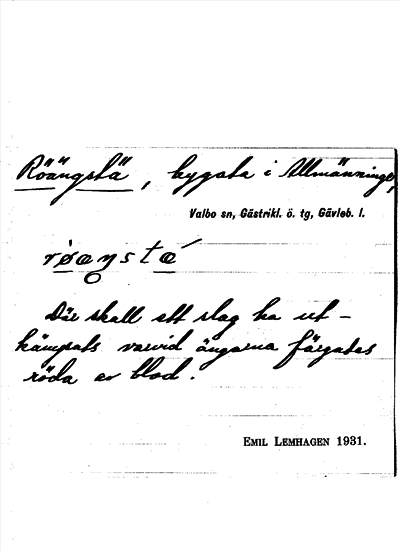 Röängstä, bygata i Allmänninge,
Valbo sn, Gästrikl. ö. tg, Gävleb. l.
røængstǽ
Där skall ett slag ha ut-
kämpats varvid ängarna färgades
röda av blod.
EMIL LEMHAGEN 1931.